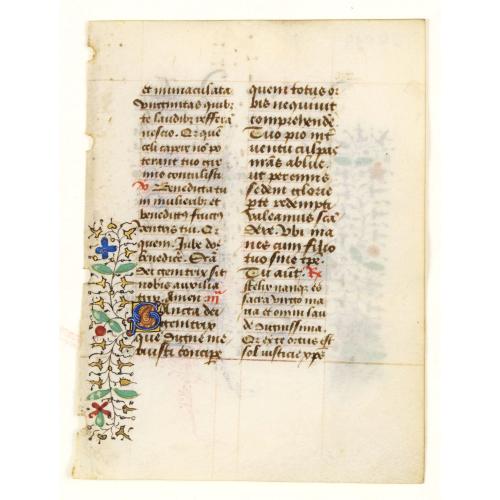 et immaculata
virginitas quib9
te laudib9 refferā
nescio. Or que
celi capere nō po
terant tuo gre
mio contulisti
V Benedicta tu
in mulierib9 et
benedict9 fruct9
ventris tui. Or
quem. Iube dō
benedice. Scā
dei genitrix sit
nobis auxilia
trix. Amen
Sancta dei
genitrix
que digne me
ruisti concipe
quem totus or
bis nequivit
comprehende
Tuo pio int
ventu culpas
nrās ablue.
ut perennis
sedem glorie
p te redempti
valeamus scā
dere. Vbi ma
nes cum filio
tuo sine tpe.
Tu aut. R
Felix namq es
sacra virgo ma
ria et omni lau
de dignissima
Or ex te ortus est
sol iusticie xps